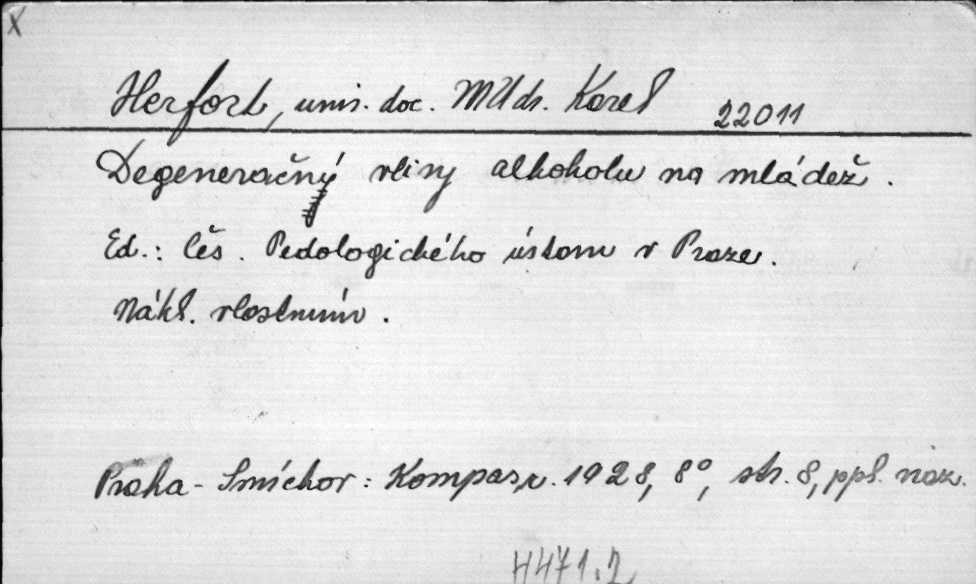 X
Herfort, univ. doc. MUdr. Karel 22011
Degeneračný vlivy alkoholu na mládež.
Ed.: Čes. Pedologického ústavu v Praze.
Nákl. vlastním.
Praha - Smíchov: Kompas, r. 1928, 8°, str. 8, ppl. váz.
H471.2